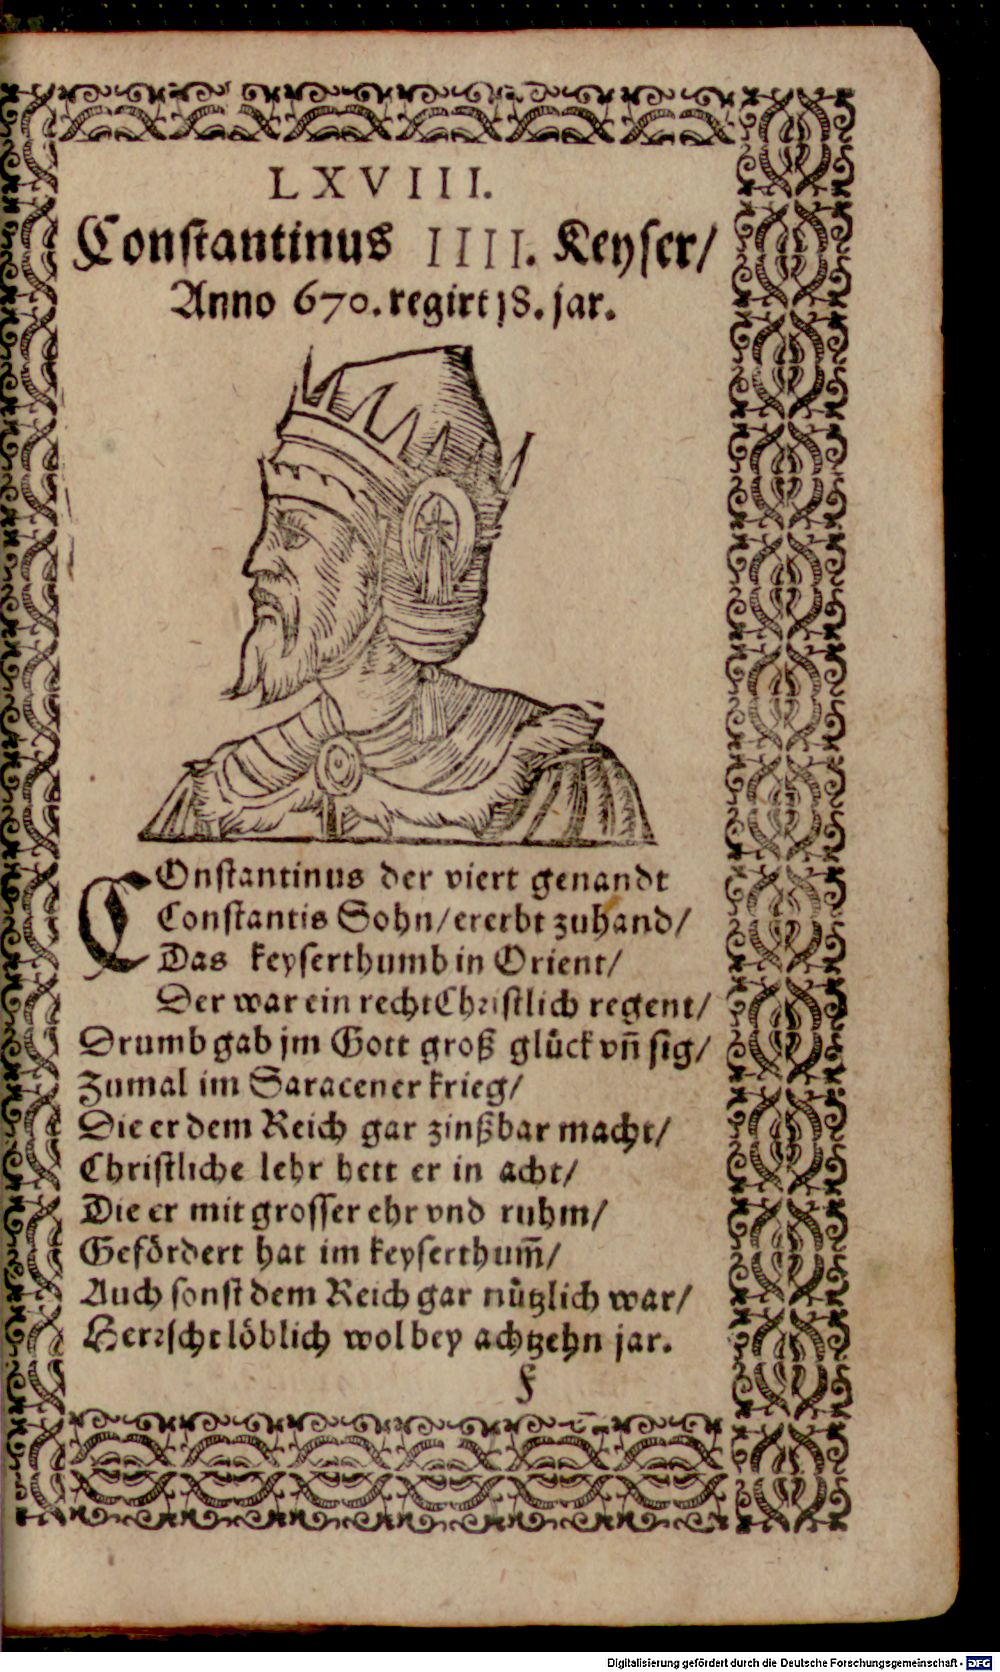 LXVIII.
Constantinus IIII. Keyser/
Anno 670. regirt 18. jar.
COnstantinus der viert genandt
Constantis Sohn/ ererbt zuhand/
Das keyserthumb in Orient/
Der war ein recht Christlich regent/
Drumb gab jm Gott groß glück vn̄ sig/
Zumal im Saracener krieg/
Die er dem Reich gar zinßbar macht/
Christliche lehr hett er in acht/
Die er mit grosser ehr vnd ruhm/
Gefördert hat im keyserthum̄/
Auch sonst dem Reich gar nützlich war/
Herrscht löblich wol bey achtzehn jar.
f
Digitalisierung gefördert durch die Deutsche Forschungsgemeinschaft - DFG